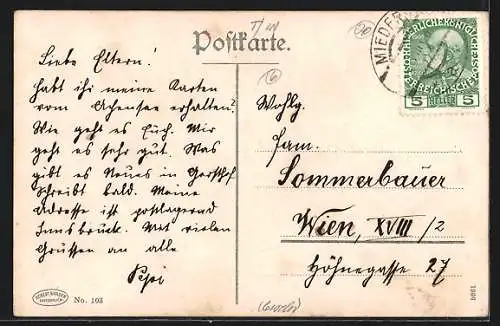 Postkarte.
Liebe Eltern!
habt ihr meine Karten
vom Achensee erhalten?
Wie geht es Euch. Mir
geht es sehr gut. Was
gibt es Neues in Gersthof
schreibt bald. Meine
Adresse ist postlagernd
Innsbruck. Mit vielen
Grüssen an alle
Pepi
No. 103
Wohlg.
Fam.
Sommerbauer
Wien, XVIII/2
Höhnegasse 27
MIEDER
5 HELLER 5